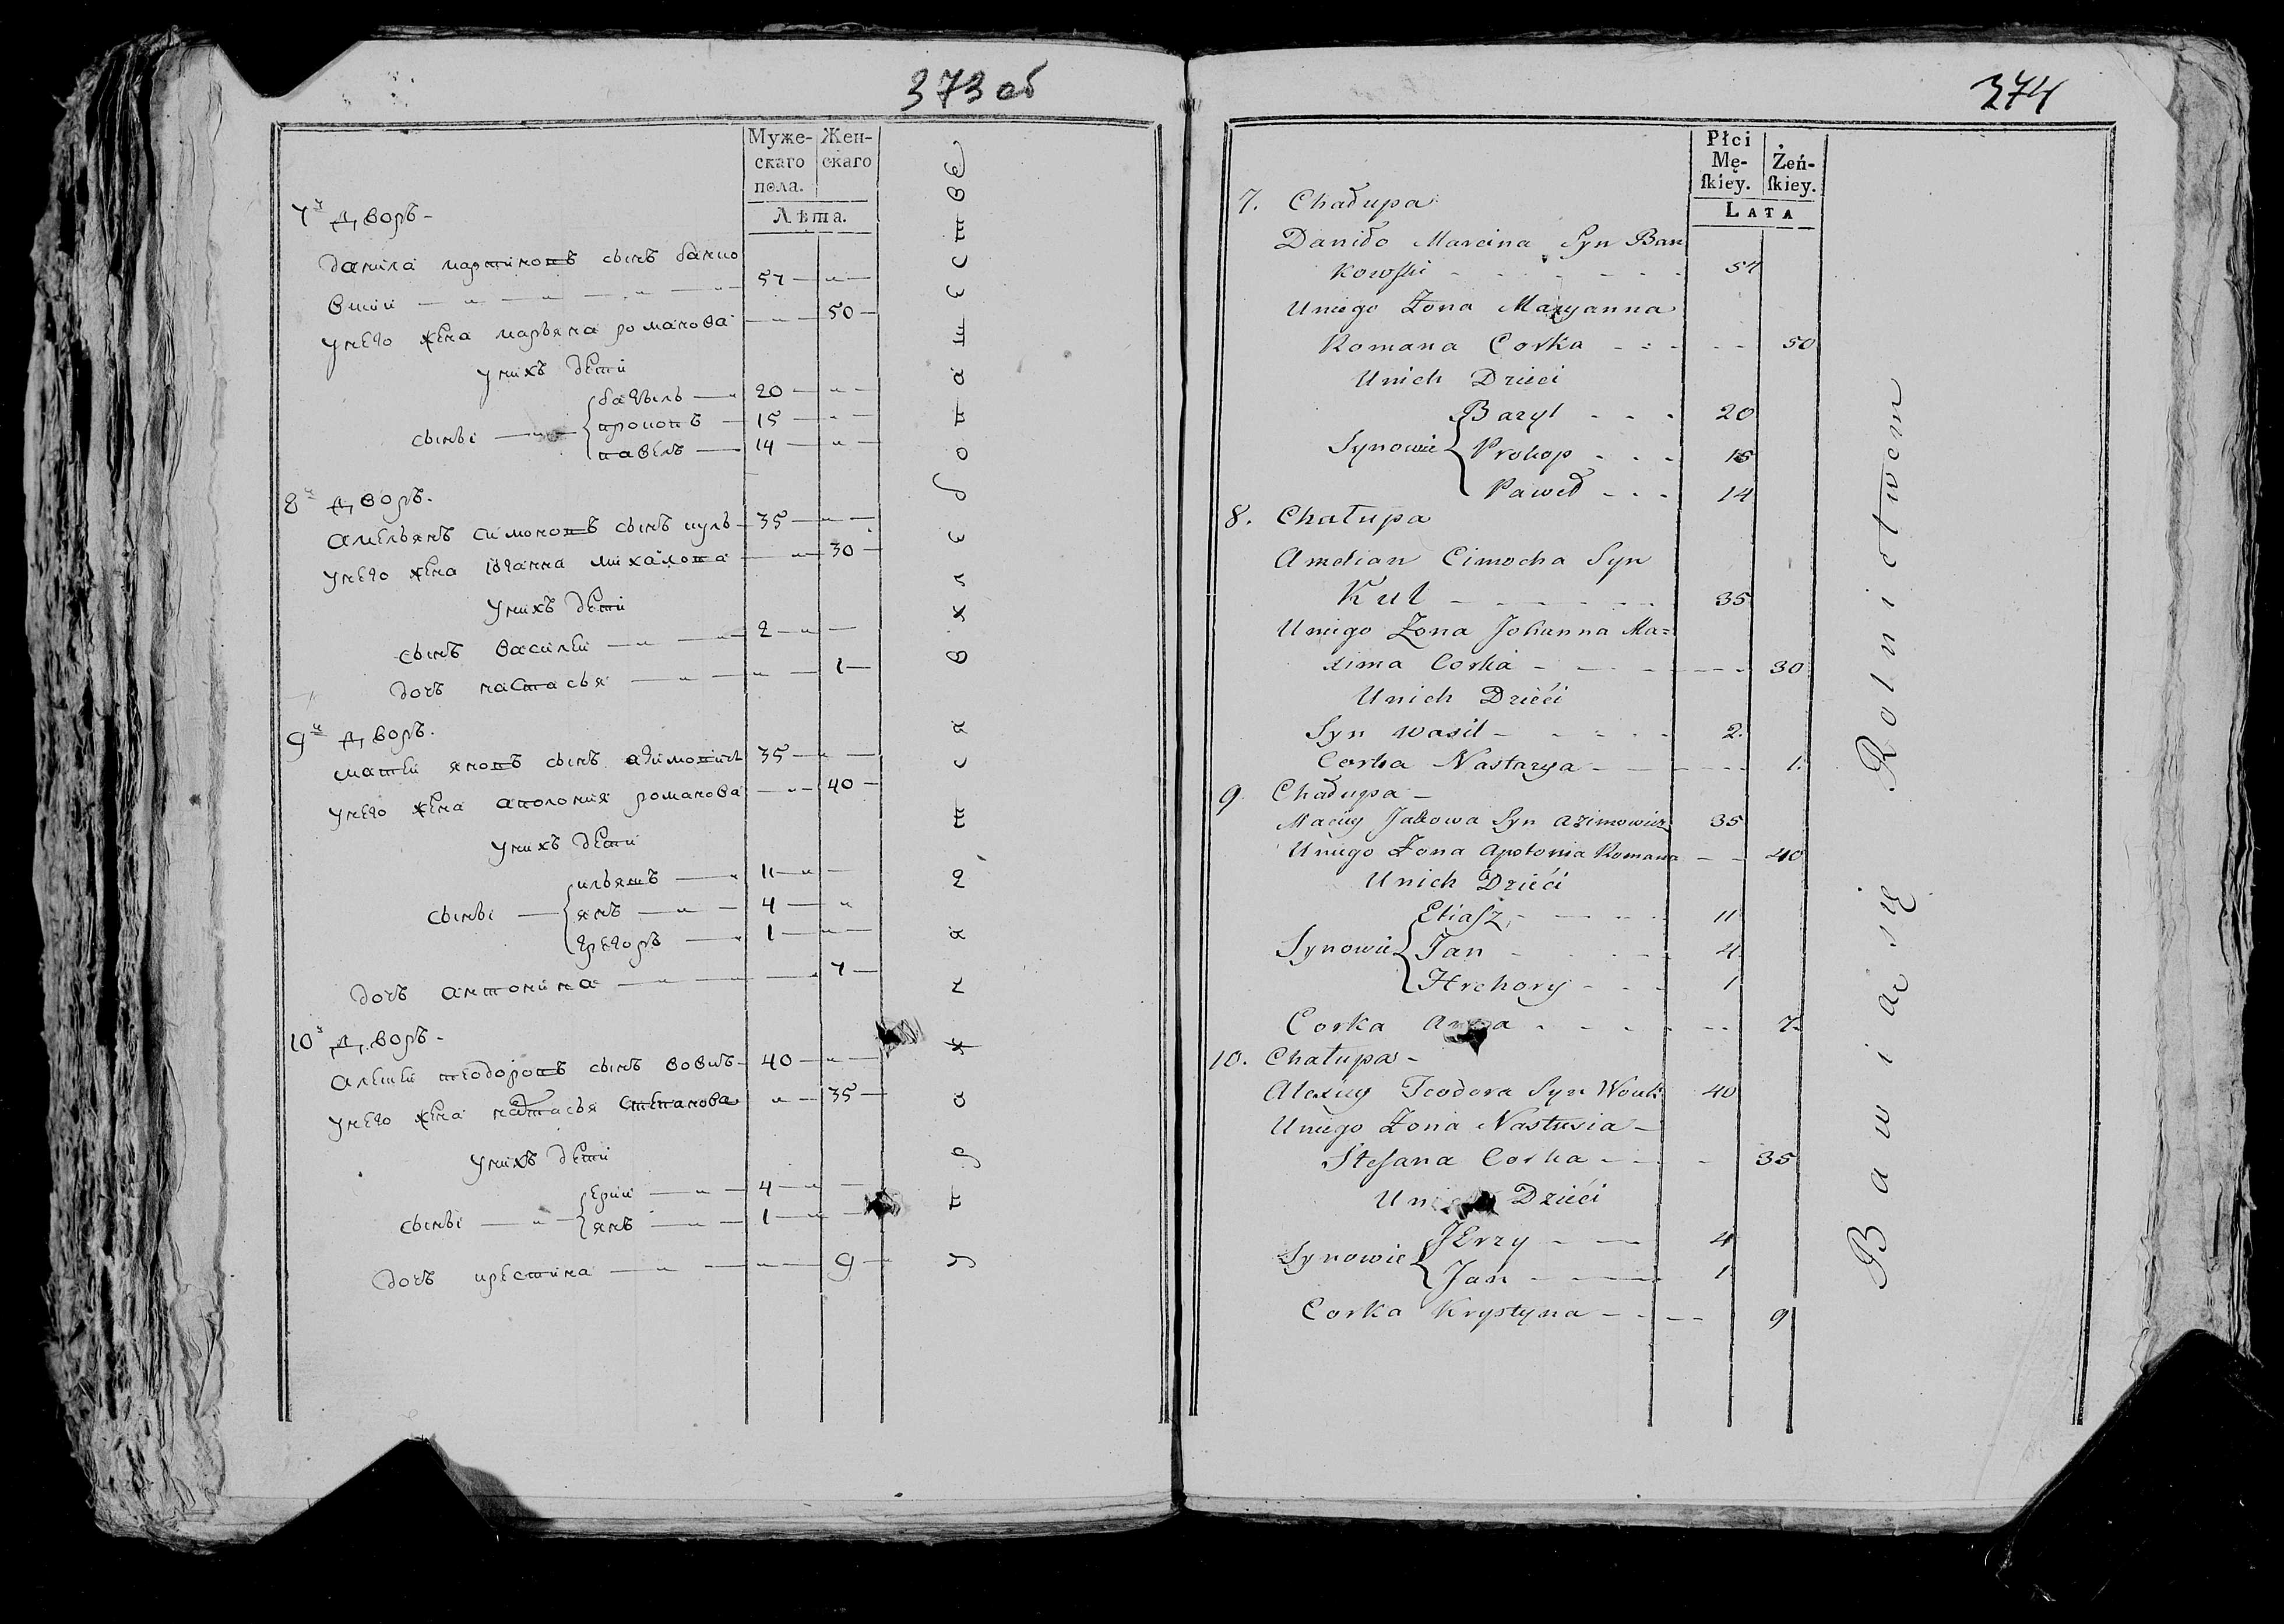 373 об
Муже-
скаго
пола.
Жен-
скаго
Лѣта.
7й Дворъ-
Данила мартиновъ сынъ банко
вшии 57
Унего жена марьяна романова 50
Унихъ дети
сыны
базыль 20
прокопъ 15
павелъ 14
8й Дворъ.
Амельянъ симоновъ сынъ куль 35
Унего жена юганна михалова 30
Унихъ дети
сынъ василеи 2
дочь настасья 1
9й Дворъ.
матеи яковъ сынъ азимовичъ 35
Унего жена аполония романова 40
Унихъ дети
сыны
ильяшъ 11
янъ 4
грегоръ 1
дочь антонина 7
10й Дворъ-
Алексеи теодоровъ сынъ вовкъ 40
Унего жена настасья степанова 35
Унихъ дети
сыны
ерии 4
янъ 1
дочь крестина 9
374
Płci
Mę-
skiey.
Żeń-
skiey.
LATA
7. Chałupa
Daniło Marcina Syn Ban
kowski 57
Uniego Żona Maryanna
Romana Corka 50
Unich Dzieci
Synowie
Bazyl 20
Prokop 15
Paweł 14
8. Chałupa
Amelian Cimocha Syn
Kul 35
Uniego Żona Johanna Ma=
xima Corka 30
Unich Dzieci
Syn Wasil 2.
Corka Nastazya 1.
9 Chałupa
Maciey Jakowa Syn Azimowicz 35
Uniego Żona Apolonia Romana 40
Unich Dzieci
Synowie
Eliasz 11
Jan 4
Hrehory 1
Corka 7.
10. Chałupa-
Alexiey Teodora Syn Wouk 40
Uniego Żona Nastusia
Stefana Corka 35
Dzieci
Synowie
JErzy 4
Jan 1
Corka Krystyna 9
Bawią się Rolnictwem